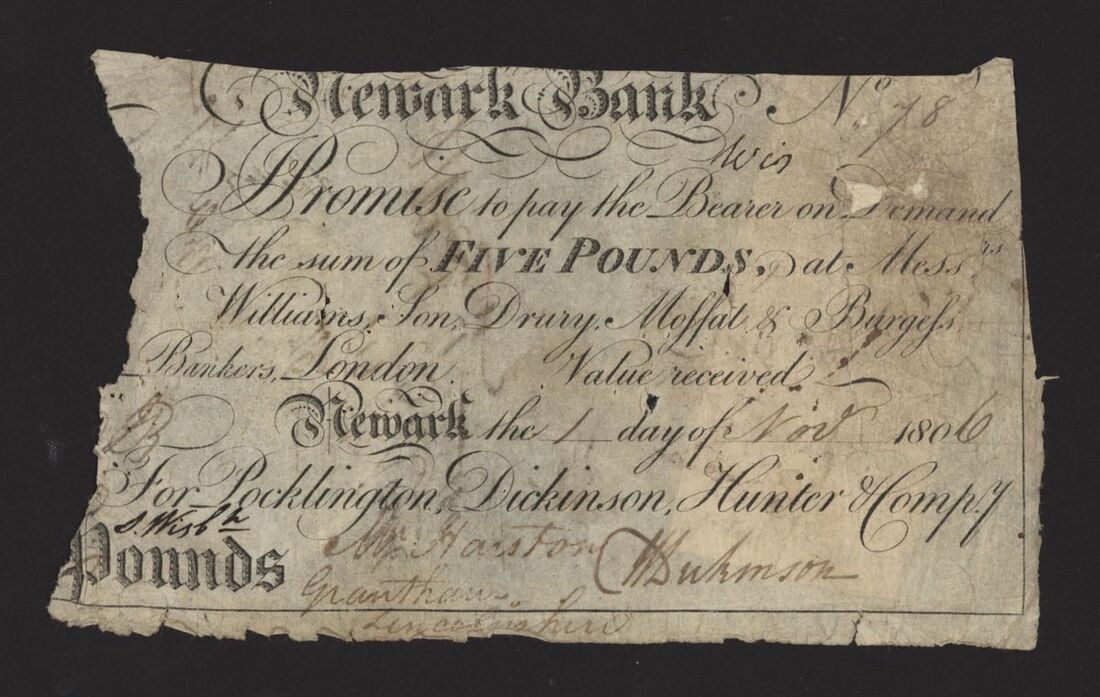 Newark Bank. No 78
Wis
I Promise to pay the Bearer on Demand
the sum of FIVE POUNDS, at Messrs
Williams, Son, Drury, Moffat & Burgess
Bankers, London. Value received
Newark the 1 day of Novr 1806
For Pocklington, Dickinson, Hunter & Compy
S. Wisbh
Pounds
Mr Harston
Dickinson
Grantham
Lincolnshire